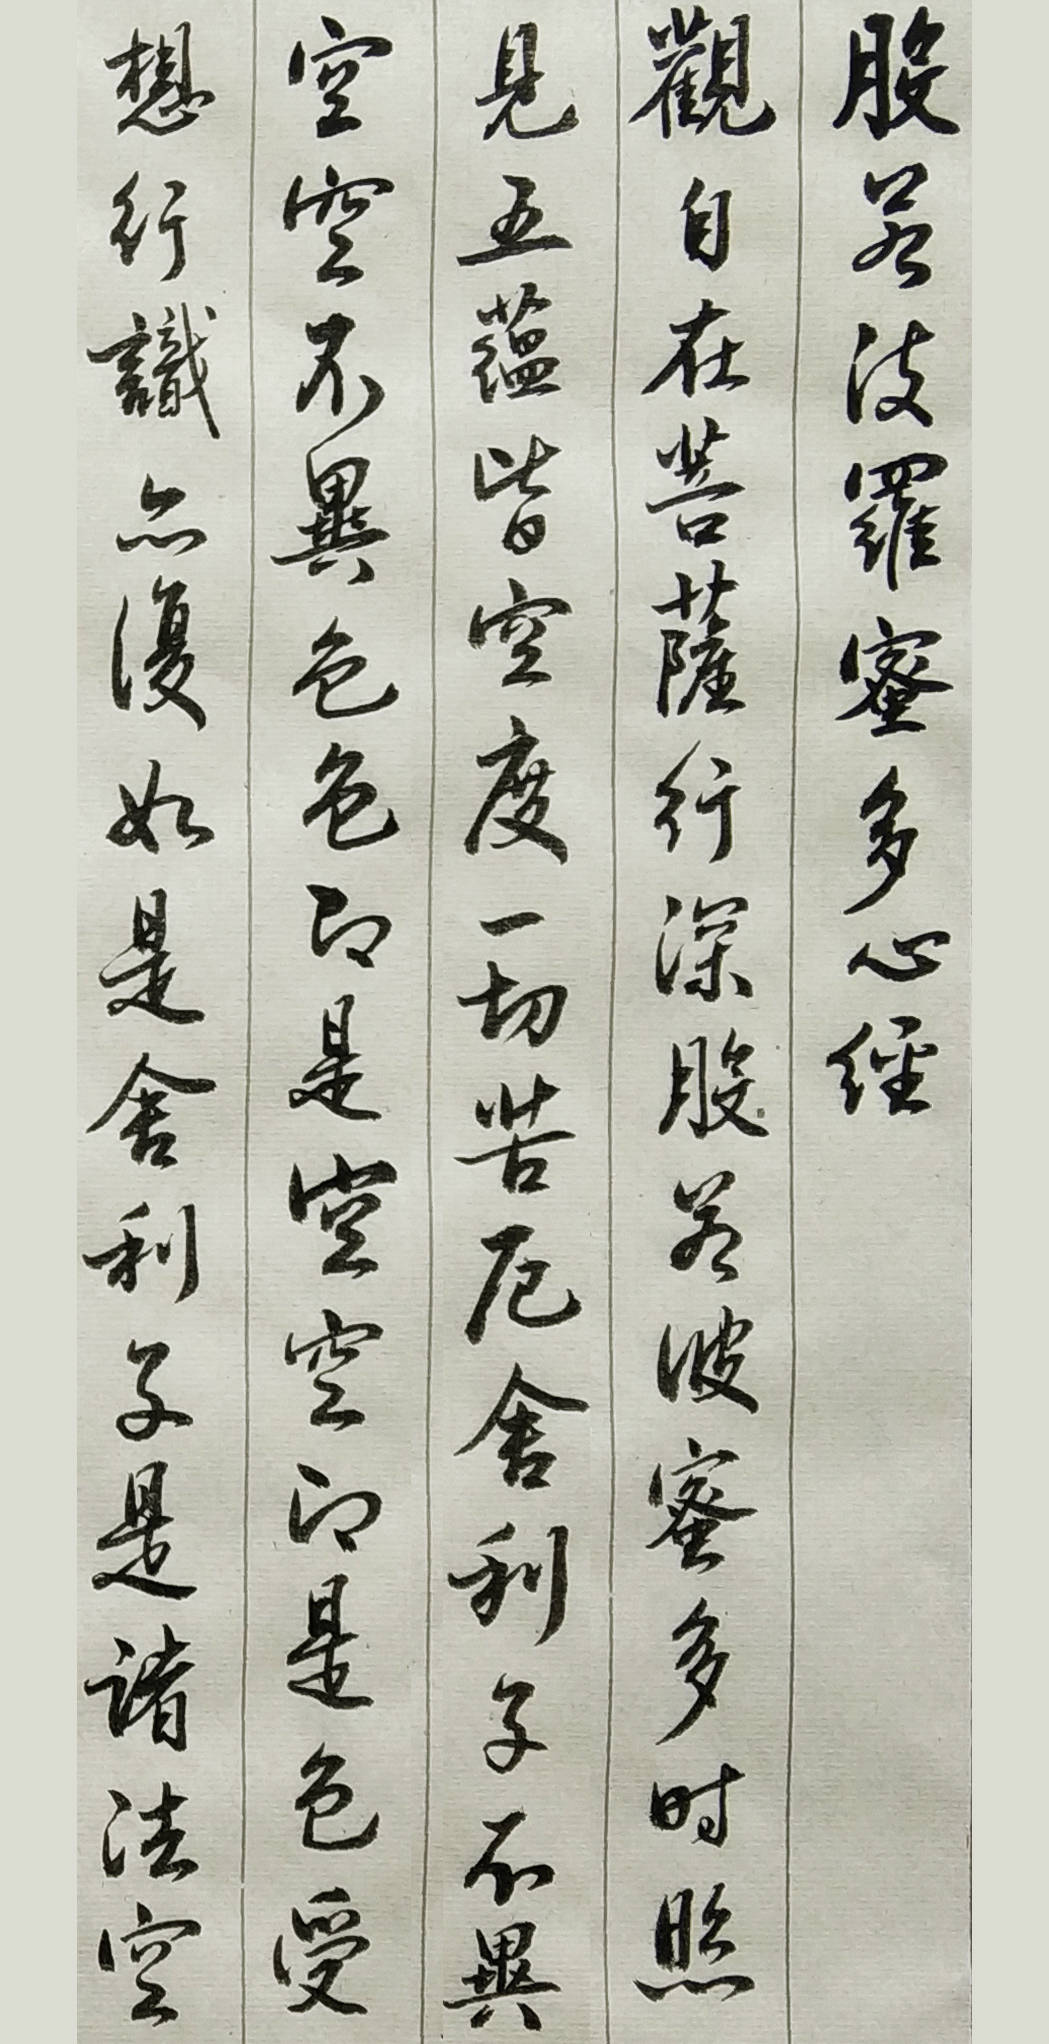 般若波羅蜜多心經
觀自在菩薩行深般若波蜜多时照
見五蘊皆空度一切苦厄舍利子不異
空空不異色色即是空空即是色受
想行識亦復如是舍利子是諸法空